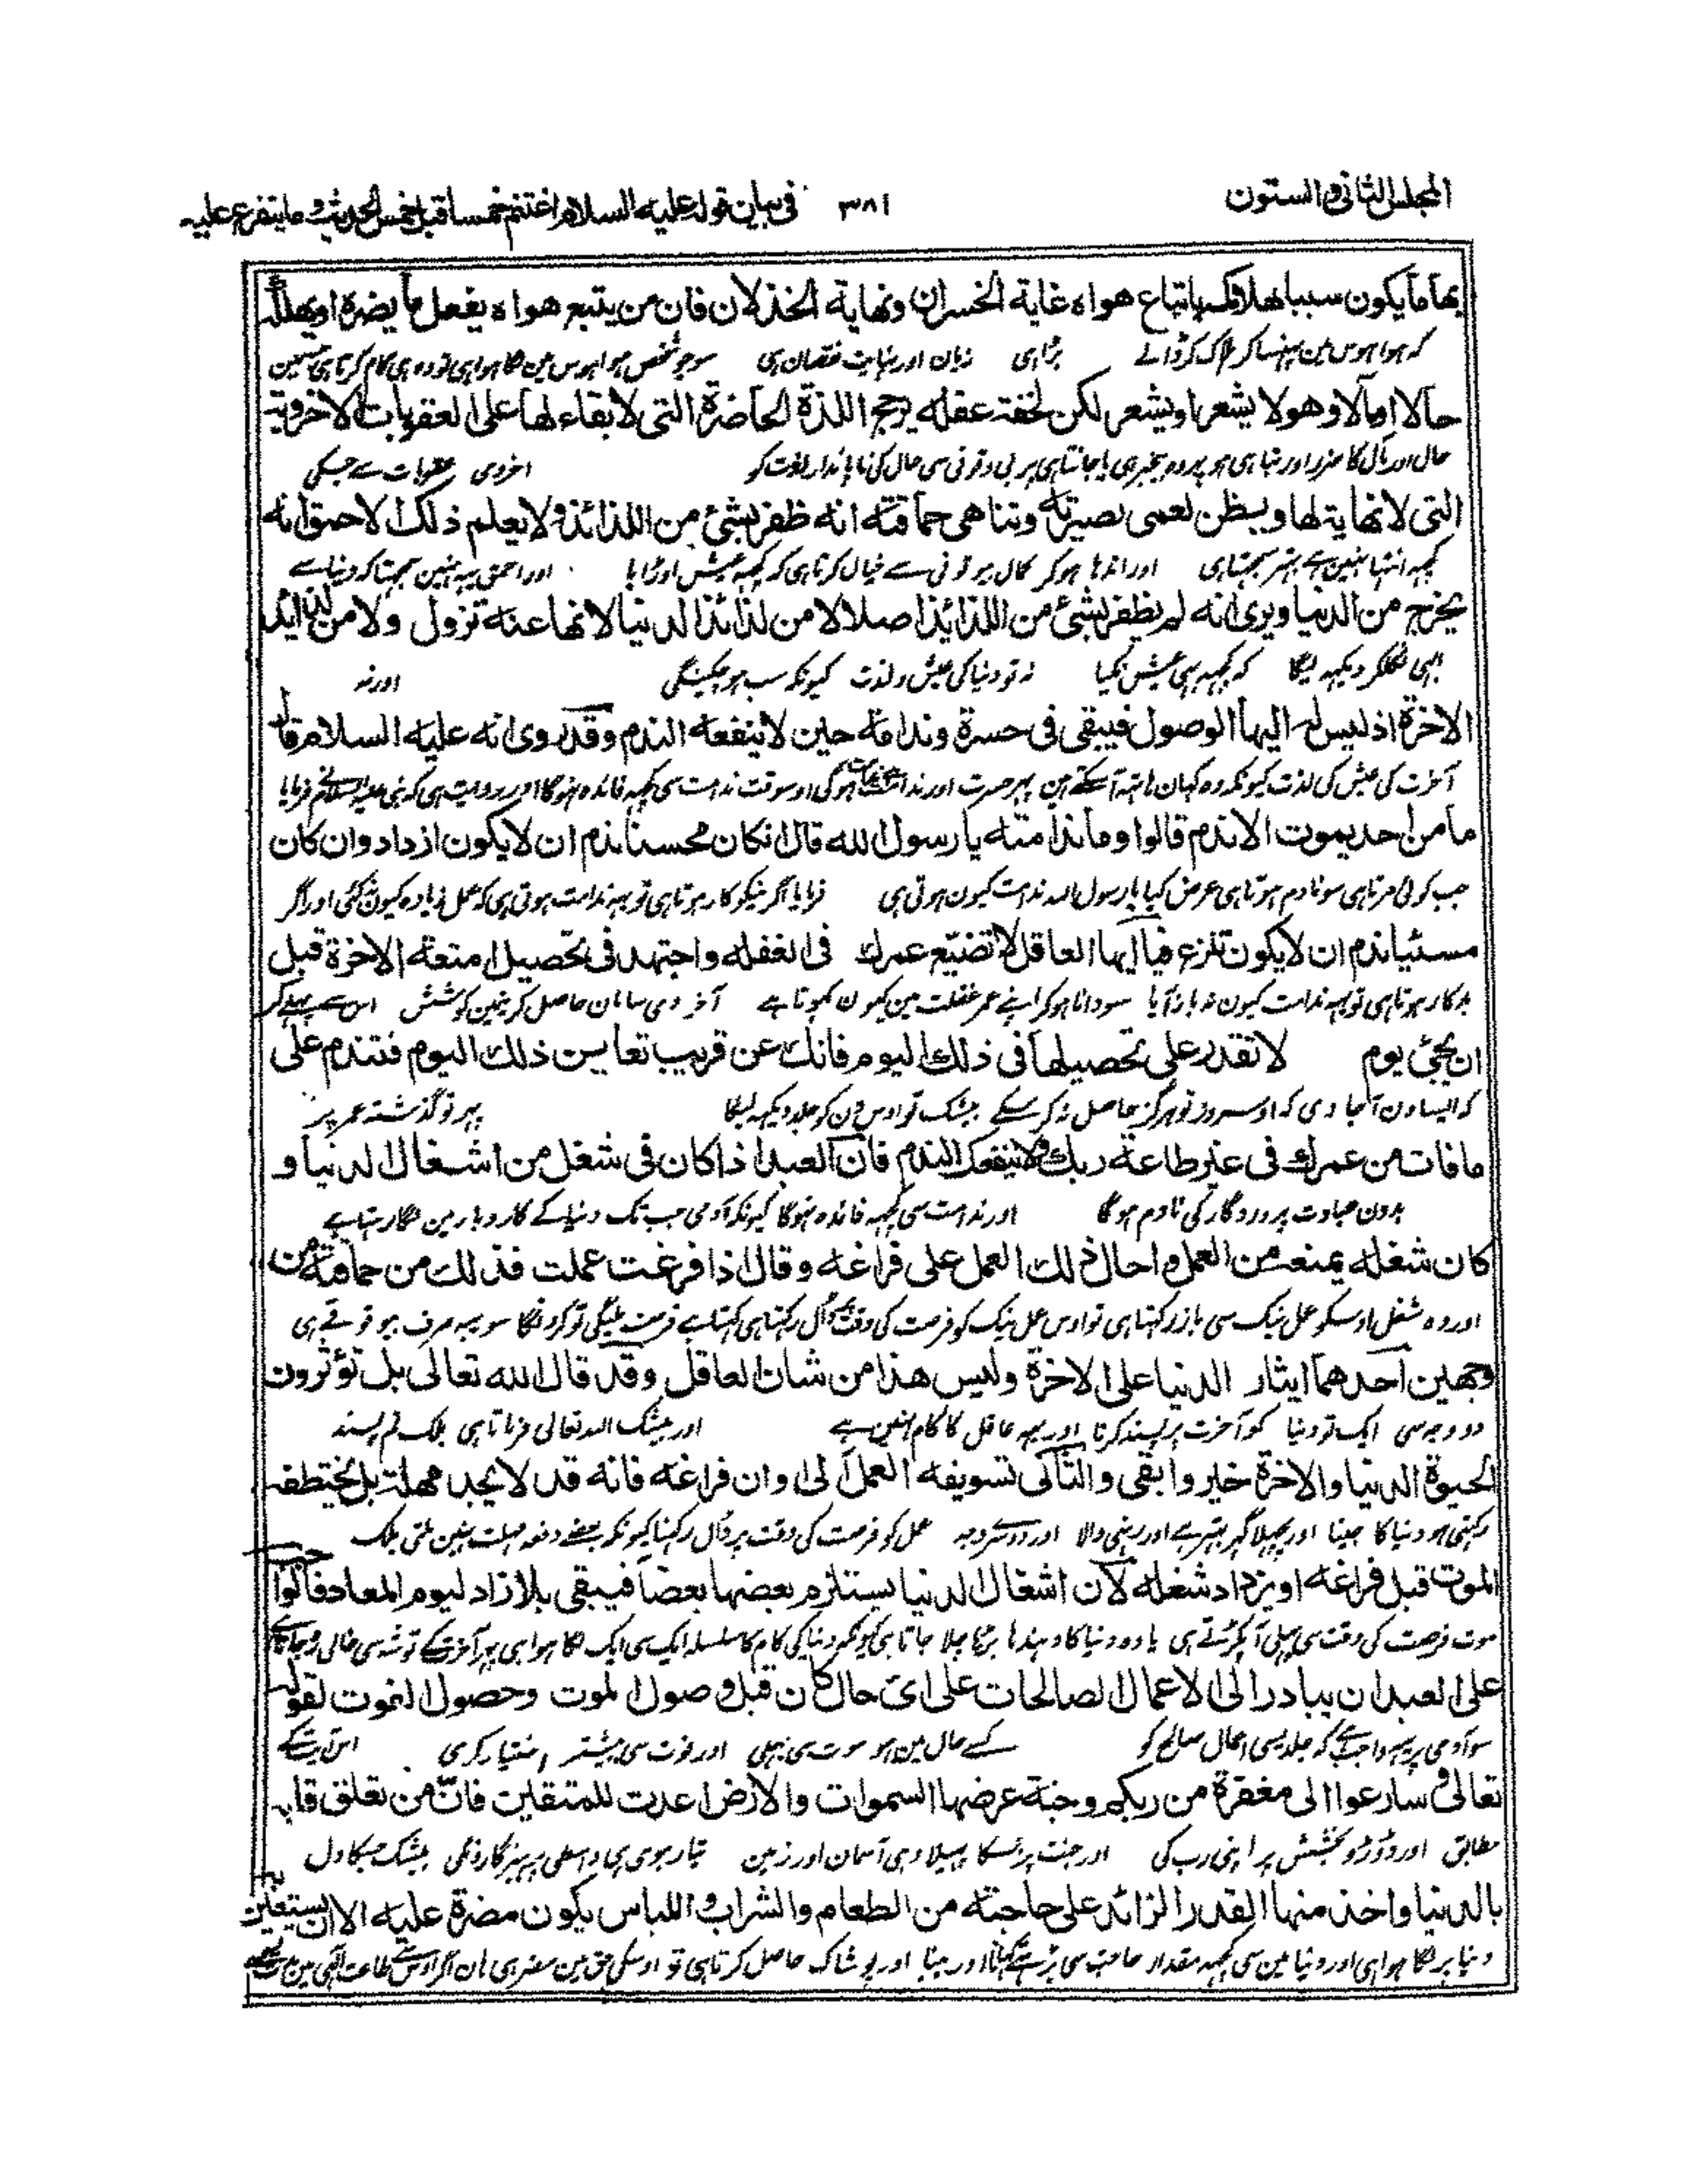 المجلس الثانی والستون ۳۸۱ فی بیان قوله علیه السلام اغتنم خمسا قبل خمس الحدیث وما یتفرع علیه
بها ما یکون سببا لهلاکه باتباع هواه غایة الخسران ونهایة الخذلان فان من یتبع هواه یفعل ما یضره او یهلکه
که هوا هوس مین پهنسا کر هلاک کر ڈالے بڑا هی زیان اور نهایت نقصان هی سو جو شخص هوا هوس مین لگا هوا هی تو وه هی کام کرتا هی
حالا او مآلا وهو لا یشعر او یشعر لکن لخفة عقله یرجح اللذة الحاضرة التی لا بقاء لها علی العقوبات الاخرویة
حال اور مآل کا ضرر اور تباهی هو پر وه بیخبر هی یا جانتا هی پر بی وقوفی سی حال کی ناپاندار لذت کو اخروی عقوبات سے جسکی
التی لا نهایة لها ویظن لعمی بصیرته وتناهی حماقته انه ظفر بشئ من اللذائذ ولا یعلم ذلک الاحمق انه
کچهه انتها نهین هے بهتر سمجهتا هی اور اندها هو کر کمال بیوقوفی سے خیال کرتا هی که کچهه عیش اوڑایا اور احمق یهه نهین سمجهتا که دنیا سے
یخرج من الدنیا ویری انه لم یظفر بشئ من اللذائذ اصلا لا من لذائذ الدنیا لانها عنه تزول ولا من لذائذ
ابهی نکلکر دیکهه لیگا که کچهه بهی عیش نکیا نه تو دنیا کی عیش و لذت کیونکه سب هو چکینگی اور نه
الاخرة اذ لیس له الیها الوصول فیبقی فی حسرة وندامة حین لا ینفعه الندم وقد روی انه علیه السلام قال
آخرت کی عیش کی لذت کیونکه وه کهان هاتهه آ سکتے هین پهر حسرت اور ندامت هوگی اوسوقت ندامت سی کچهه فائده نهوگا اور روایت هی که نبی علیه السلام نے فرمایا
ما من احد یموت الا ندم قالوا وما ندامته یا رسول الله قال ان کان محسنا ندم ان لا یکون ازداد وان کان
جب کوئی مرتا هی سو نادم هوتا هی عرض کیا یا رسول الله ندامت کیون هوتی هی فرمایا اگر نیکو کار هوتا هی تو یهه ندامت هوتی هی که عمل زیاده کیون نکئی اور اگر
مسئیا ندم ان لا یکون نزع فیا ایها العاقل لا تضیع عمرک فی الغفلة واجتهد فی تحصیل امتعة الاخرة قبل
بدکار هوتا هی تو یهه ندامت کیون نه باز آیا سو دانا هو کر اپنے عمر غفلت مین کیون کهوتا هے آخروی سامان حاصل کرنیمین کوشش اس سے پهلے کر
ان یجئ یوم لا تقدر علی تحصیلها فی ذلک الیوم فانک عن قریب تعاین ذلک الیوم فتندم علی
که ایسا دن آ جاوی که اوس روز تو هرگز حاصل نه کر سکے بیشک تو اوس دن کو جلد دیکهه لیگا پهر تو گذشته عمر پر
ما فات من عمرک فی غیر طاعة ربک ولا ینفعک الندم فان العبد اذا کان فی شغل من اشغال الدنیا و
بدون عبادت پروردگار کی نادم هوگا اور ندامت سی کچهه فائده نهوگا کیونکه آدمی جب تک دنیا کے کاروبار مین لگا رهتا هے
کان شغله یمنعه من العمل واحال ذلک العمل علی فراغه وقال اذا فرغت عملت فذلک من حماقته من
اور وه شغل اوسکو عمل نیک سی باز رکهتا هی تو اوس عمل نیک کو فرصت کی وقت پر ٹال رکهتا هی کهتا هے فرصت ملیگی تو کرونگا سو یهه صرف بیوقوفی هی
وجهین احدهما ایثار الدنیا علی الاخرة ولیس هذا من شان العاقل وقد قال الله تعالی بل تؤثرون
دو وجه سی ایک تو دنیا کو آخرت پر پسند کرنا اور یهه عاقل کا کام نهین هے اور بیشک الله تعالی فرماتا هی بلکه تم پسند
الحیوة الدنیا والاخرة خیر وابقی والثانی تسویفه العمل الی اوان فراغه فانه قد لا یجد مهلة بل یختطفه
رکهتی هو دنیا کا جینا اور پچهلا گهر بهتر هے اور رهنی والا اور دوسری وجه عمل کو فرصت کی وقت پر ٹال رکهنا کیونکه بعضے دفعه مهلت نهین ملتی بلکه
الموت قبل فراغه او یزداد شغله لان اشغال الدنیا یستلزم بعضها بعضا فیبقی بلا زاد لیوم المعاد فالواجب
موت فرصت کی وقت سی پهلی آ پکڑتے هی یا وه دنیا کا دهندا بڑهتا چلا جاتا هی کیونکه دنیا کی کام کا سلسله ایک سی ایک لگا هوا هی پهر آخرت کے توشه سی خالی رهجاتا هے
علی العبد ان یبادر الی الاعمال الصالحات علی ای حال کان قبل وصول الموت وحصول الفوت لقوله
سو آدمی پر یهه واجب هے که جلدیسی اعمال صالح کو کسے حال مین هو موت سی پهلی اور فوت سی پیشتر اختیار کری اس آیت کے
تعالی وسارعوا الی مغفرة من ربکم وجنة عرضها السموات والارض اعدت للمتقین فان من تعلق قلبه
مطابق اور دوڑو بخشش پر اپنی رب کی اور جنت پر جسکا پهیلاو هی آسمان اور زمین تیار هوی هی واسطی پرهیزگارونکی بیشک جسکا دل
بالدنیا واخذ منها القدر الزائد علی حاجته من الطعام والشراب واللباس یکون مضرة علیه الا ان یستعین به
دنیا پر لگا هوا هی اور دنیا مین سی کچهه مقدار حاجت سی بڑهکے کهانا اور پینا اور پوشاک حاصل کرتا هی تو اوسکی حق مین مضر هی هان اگر اوس سے طاعت الهی مین